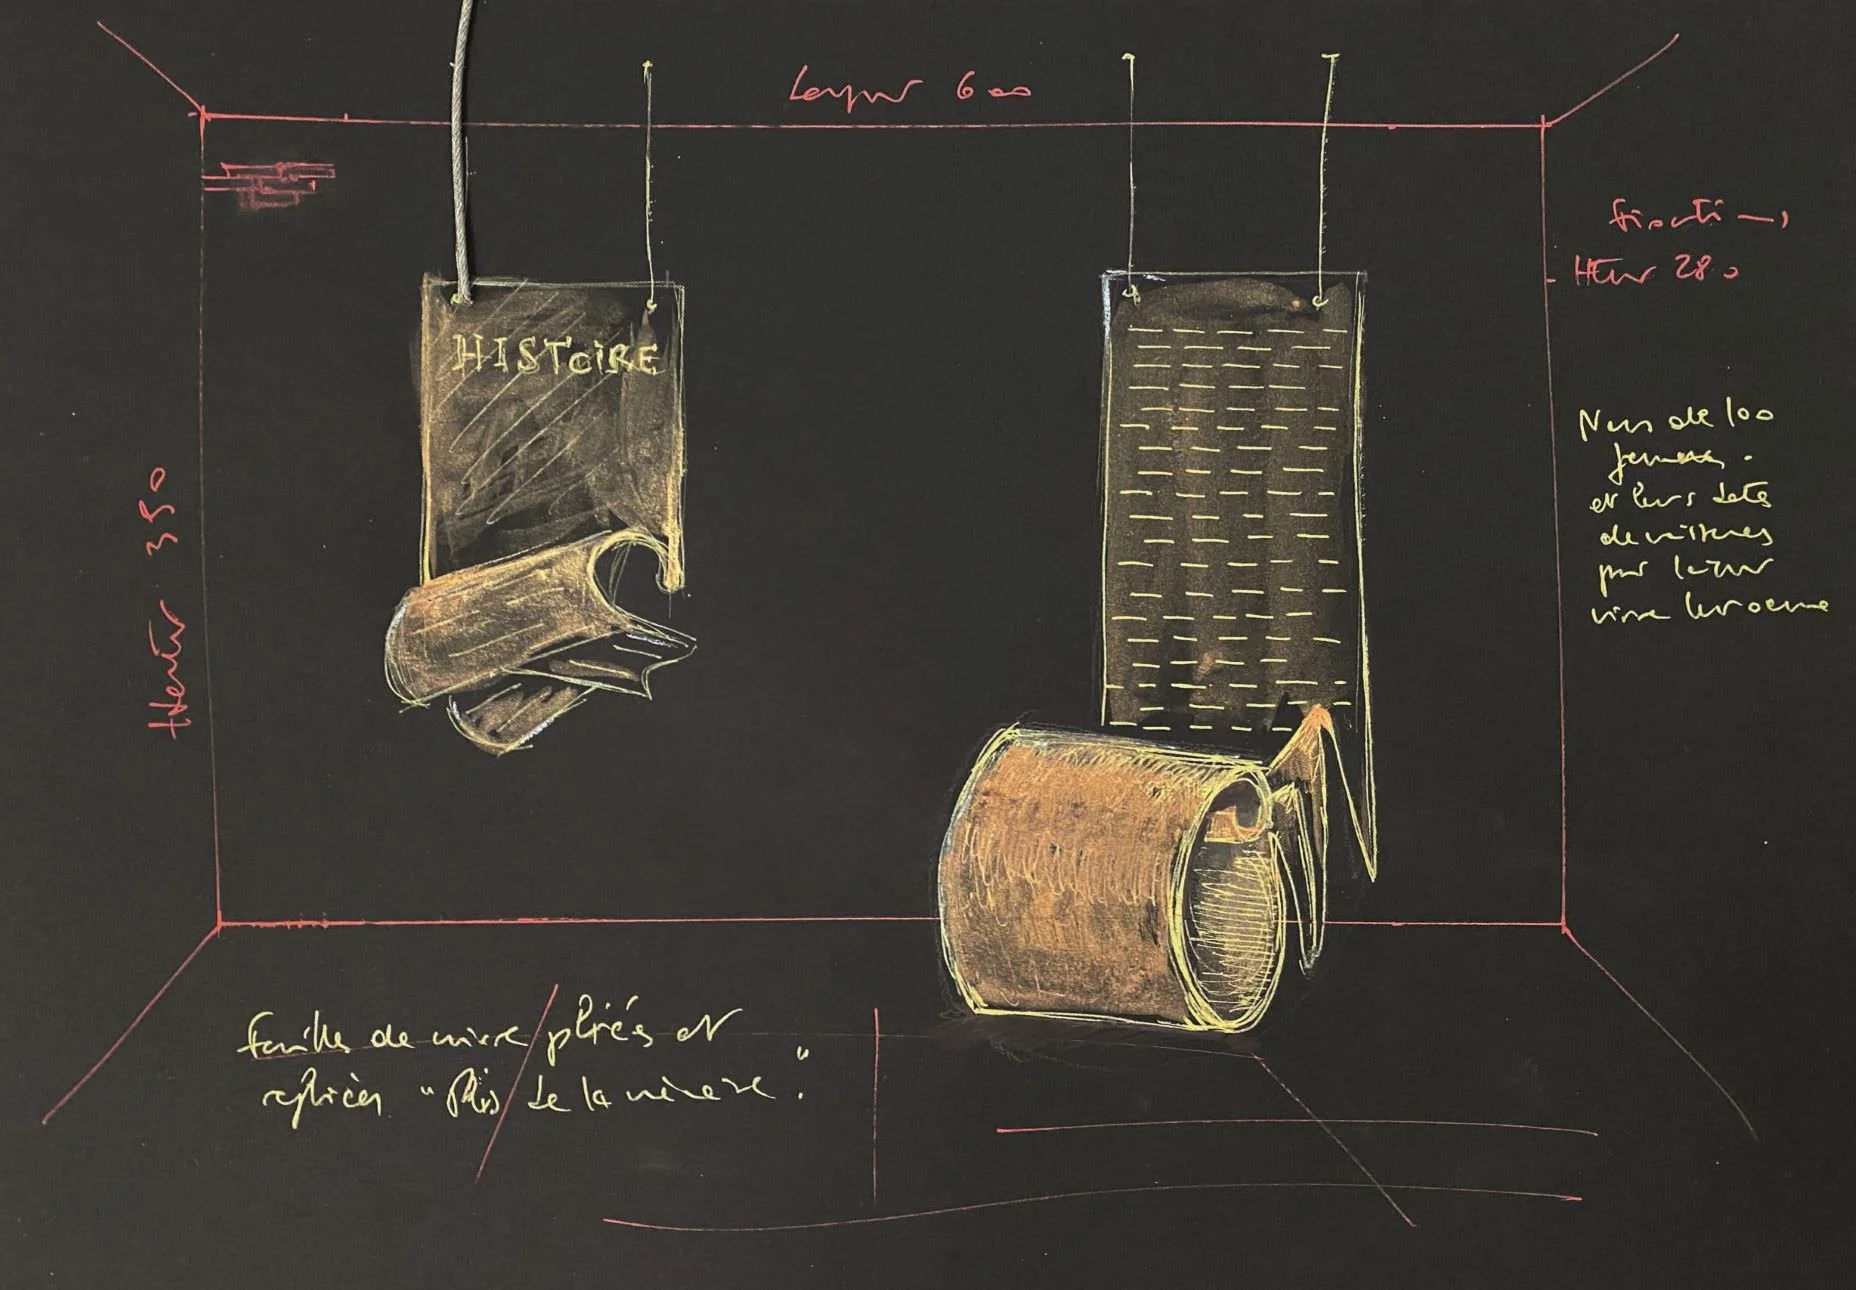 Largeur 600
fixations
Hteur 280
HISTOiRE
Hauteur 350
Noms de 100
femmes.
et leurs dates
de
par
vivre leur oeuvre
feuilles de cuivre pliées et
repliées "Plis de la mémoire".